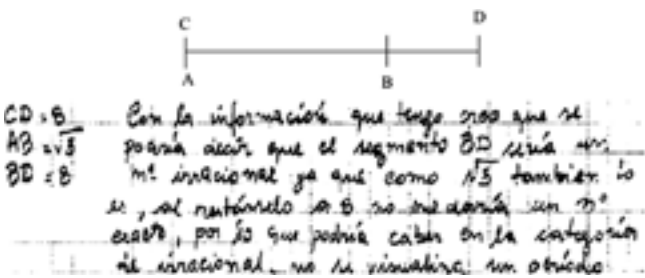 C D
A B
CD = 8 Con la información que tengo creo que se
AB = √3 podría decir que el segmento BD sería un
BD = 8 nº irracional ya que como √3 tambien lo
es, al restárselo a 8 no me daría un nº
exacto, por lo que podría caber en la categoría
de irracional, no se visualiza un